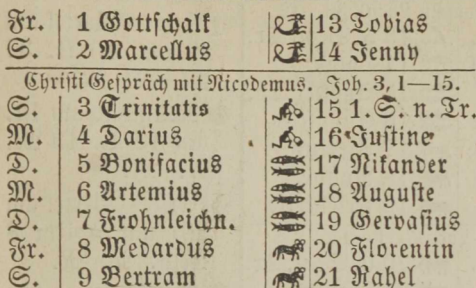 Fr. 1 Gottschalk 13 Tobias
S. 2 Marcellus 14 Jenny
Christi Gespräch mit Nicodemus. Joh. 3, 1—15.
S. 3 Trinitatis 15 1. S. n. Tr.
M. 4 Darius 16 Justine
D. 5 Bonifacius 17 Nikander
M. 6 Artemius 18 Auguste
D. 7 Frohnleichn. 19 Gervasius
Fr. 8 Medardus 20 Florentin
S. 9 Bertram 21 Rahel